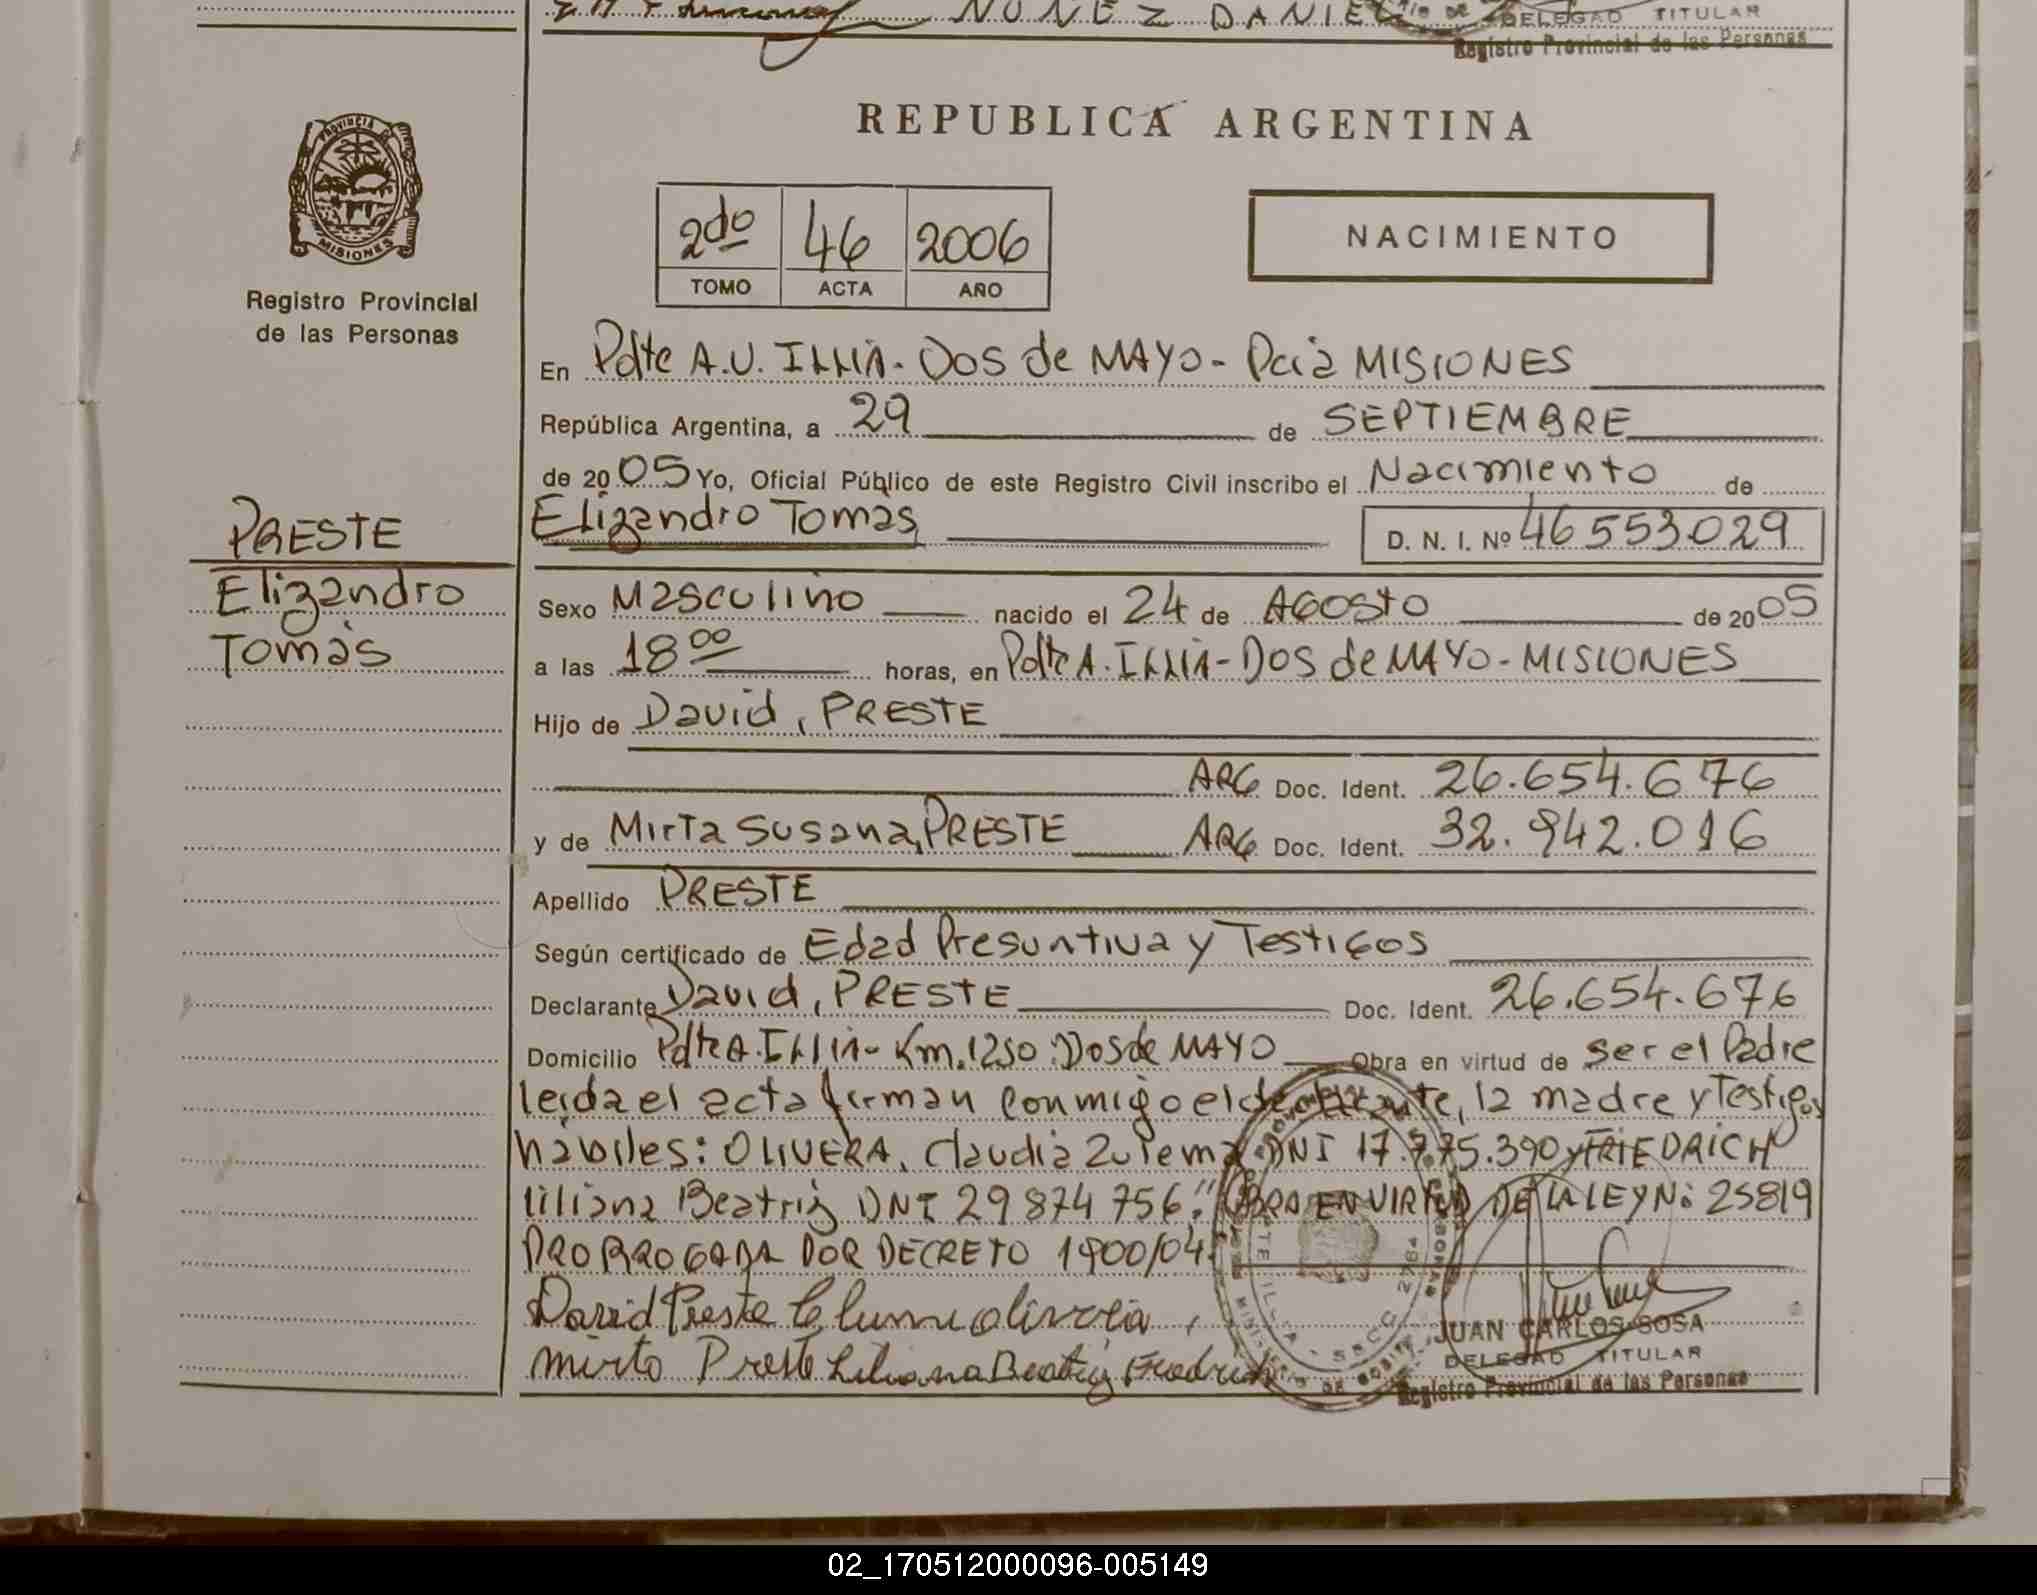 NUÑEZ DANIEL
DELEGAD TITULAR
Registro Provincial de las Personas
REPUBLICA ARGENTINA
PROVINCIA DE
MISIONES
Registro Provincial
de las Personas
2do 46 2006
TOMO ACTA AÑO
NACIMIENTO
En Pdte A.U. ILLIA - DOS de MAYO - Pcia MISIONES
República Argentina, a 29 de SEPTIEMBRE
de 2005 Yo, Oficial Público de este Registro Civil inscribo el Nacimiento de
Elizandro Tomas D. N. I. Nº 46553029
PRESTE
Elizandro
Tomàs
Sexo Masculino nacido el 24 de AGOSTO de 2005
a las 18 00 horas, en Pdte A. ILLIA - DOS de MAYO - MISIONES
Hijo de David, PRESTE
ARG Doc. Ident. 26.654.676
y de Mirta Susana, PRESTE ARG Doc. Ident. 32.942.016
Apellido PRESTE
Según certificado de Edad Presuntiva y Testigos
Declarante David, PRESTE Doc. Ident. 26.654.676
Domicilio Pdte A. Illia - Km. 1250 - Dos de MAYO Obra en virtud de ser el Padre
leida el acta firman conmigo el declarante, la madre y Testigos
hàbiles: OLIVERA, Claudia Zulema DNI 17.775.390 y FRIEDRICH
liliana Beatriz DNI 29 874 756. "OBRA EN VIRTUD DE LA LEY Nº 25819
PRORROGADA POR DECRETO 1900/04.
David Preste Olivera
mirta Preste Liliana Beatriz Fredrich
JUAN CARLOS SOSA
DELEGAD TITULAR
Registro Provincial de las Personas
02_170512000096-005149